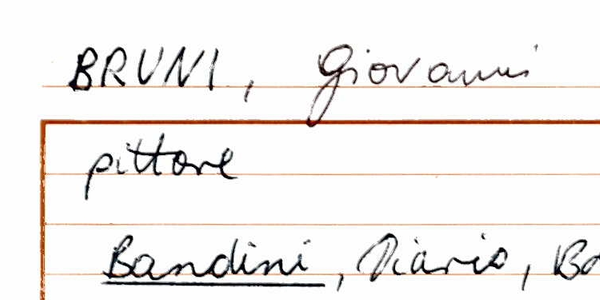 BRUNI, Giovanni
pittore
Bandini, Diario, Bo